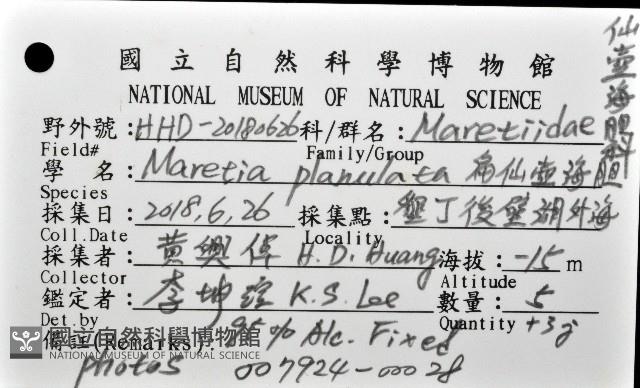 國立自然科學博物館
NATIONAL MUSEUM OF NATURAL SCIENCE
仙壺海胆科
野外號：HHD-20180626 科/群名：Maretiidae
Field# Family/Group
學 名：Maretia planulata 扁仙壺海胆
Species
採集日：2018,6,26 採集點：墾丁後壁湖外海
Coll.Date Locality
採集者：黃興倬 H.D. Huang 海拔：-15 m
Collector Altitude
鑑定者：李坤瑄 K.S. Lee 數量：5
Det.by Quantity +3
備註(Remarks)：95% Alc. Fixed
photos 007924-00028
國立自然科學博物館
NATIONAL MUSEUM OF NATURAL SCIENCE